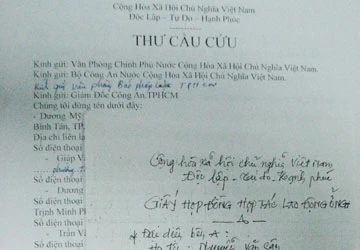 Cộng Hòa Xã Hội Chủ Nghĩa Việt Nam
Độc Lập – Tự Do – Hạnh Phúc
THƯ CẦU CỨU
Kính gửi: Văn Phòng Chính Phủ Nước Cộng Hòa Xã Hội Chủ Nghĩa Việt Nam.
Kính gửi: Bộ Công An Nước Cộng Hòa Xã Hội Chủ Nghĩa Việt Nam.
Kính gửi Văn phòng Báo pháp luật TPHCM
Kính gửi: Giám Đốc Công An TPHCM
Chúng tôi đứng tên dưới đây:
- Dương Mỹ
Bình Tân, TP
Địa chỉ liên lạ
Số điện thoại
- Giáp V
phường
Số điện thoại
- Dương
Số điện thoại
Trịnh Minh P
Số điện thoại
- Trần V
Số điện thoại
Cộng hòa xã hội chủ nghĩa Việt Nam
Độc lập - tự do - Hạnh phúc
GIẤY HỢP ĐỒNG HỢP TÁC LAO ĐỘNG
Đại diện bên A:
Họ Tên: Nguyễn Văn